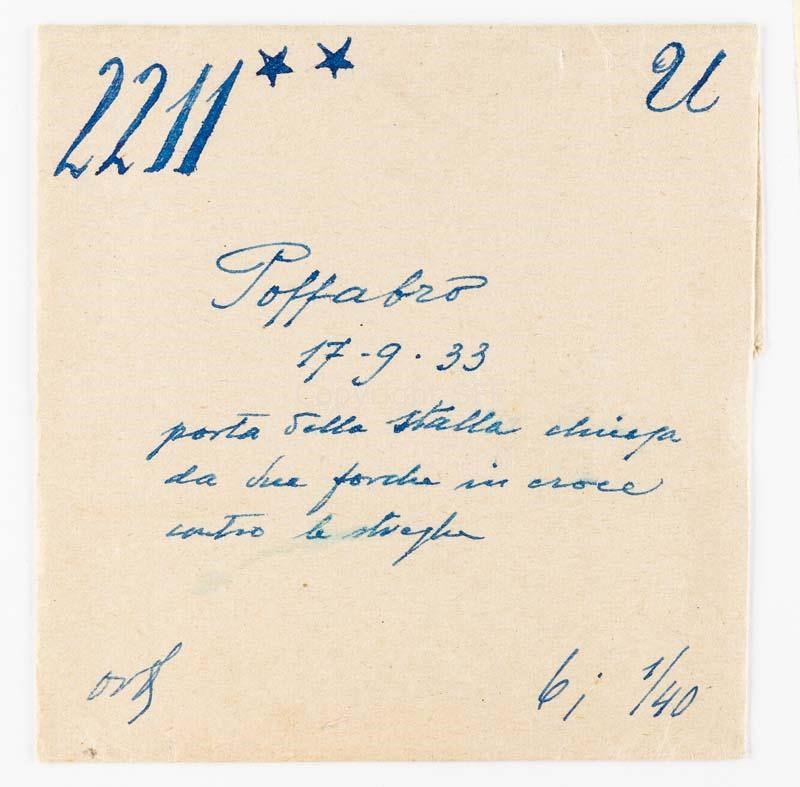 2211** U
Poffabro
17-9.33
porta della stalla chiusa
da due forche in croce
contro le streghe
6; 1/40